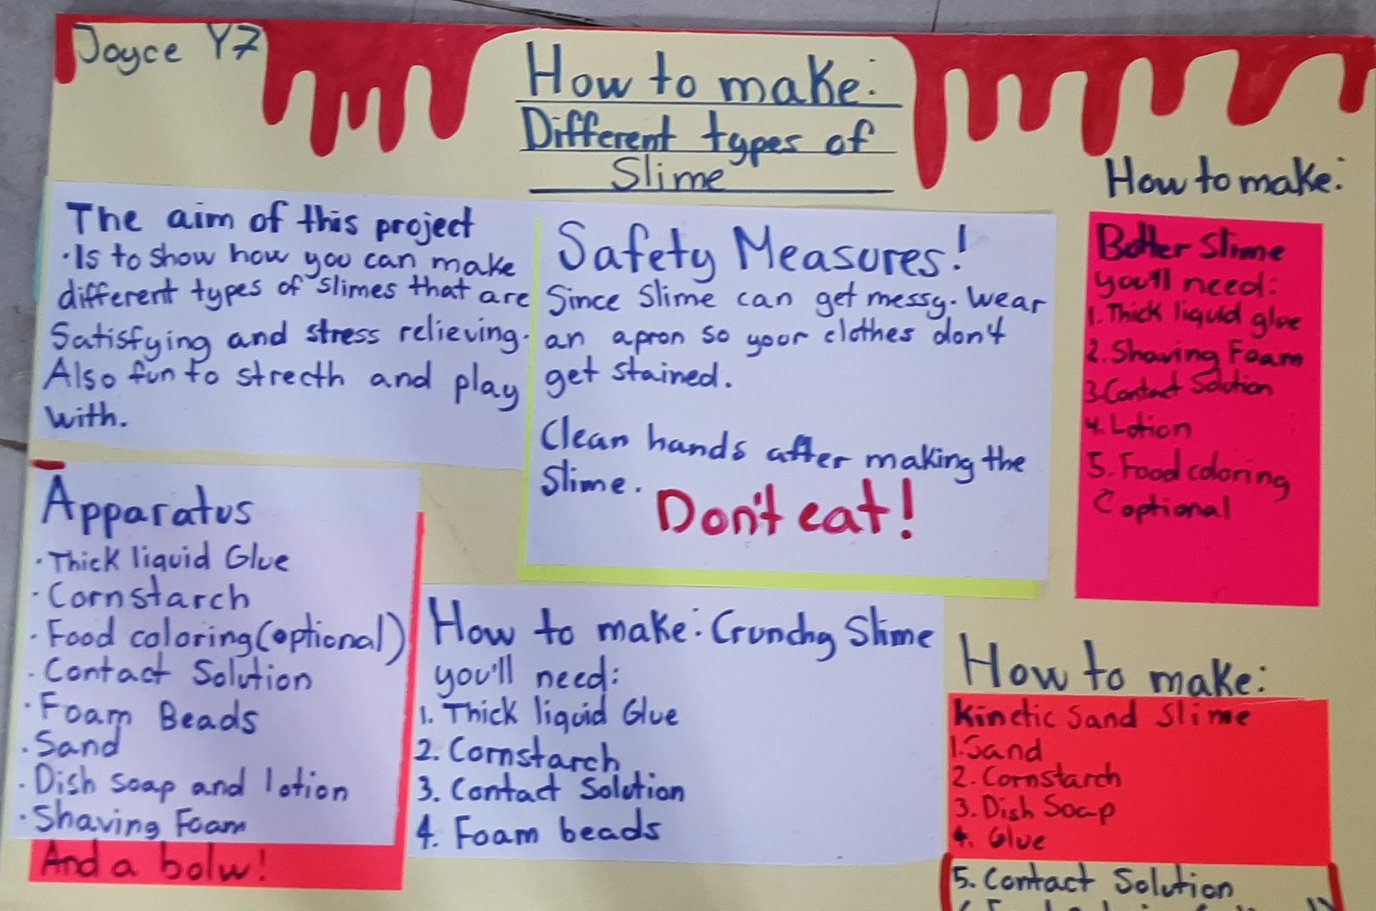 Joyce Y7
How to make:
Different types of
Slime
The aim of this project
·Is to show how you can make
different types of slimes that are
Satisfying and stress relieving.
Also fun to strecth and play
with.
Safety Measures!
Since Slime can get messy. Wear
an apron so your clothes don't
get stained.
Clean hands after making the
Slime.
Don't eat!
How to make:
Butter Slime
you'll need:
1. Thick liquid glue
2. Shaving Foam
3. Contact Solution
4. Lotion
5. Food coloring
(optional
Apparatus
· Thick liquid Glue
· Cornstarch
· Food coloring (optional)
· Contact Solution
· Foam Beads
· Sand
· Dish soap and lotion
· Shaving Foam
And a bolw!
How to make: Crunchy Slime
you'll need:
1. Thick liquid Glue
2. Cornstarch
3. Contact Solution
4. Foam beads
How to make:
Kinetic Sand Slime
1. Sand
2. Cornstarch
3. Dish Soap
4. Glue
5. Contact Solution